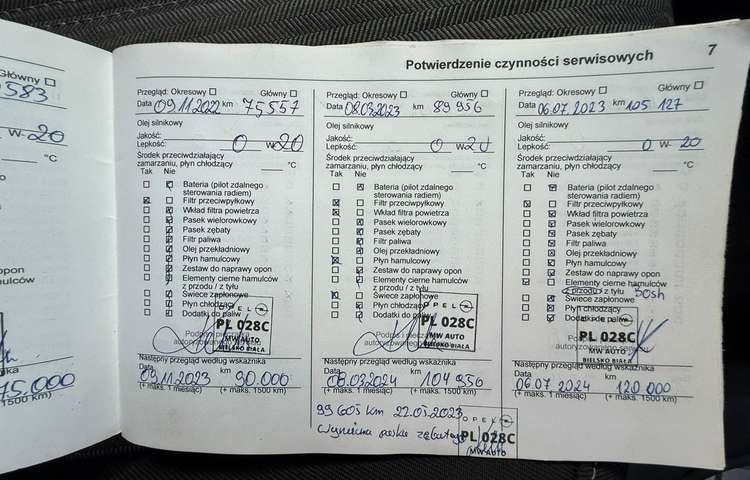 Główny
Potwierdzenie czynności serwisowych
7
W-20
°C
opon
mulców
15.000
1500 km)
Przegląd: Okresowy Główny
Data 09.11.2022 km 75557
Olej silnikowy
Jakość:
Lepkość: 0 W-20
Środek przeciwdziałający
zamarzaniu, płyn chłodzący °C
Tak Nie
Bateria (pilot zdalnego
sterowania radiem)
Filtr przeciwpyłkowy
Wkład filtra powietrza
Pasek wielorowkowy
Pasek zębaty
Filtr paliwa
Olej przekładniowy
Płyn hamulcowy
Zestaw do naprawy opon
Elementy cierne hamulców
z przodu / z tyłu
Świece zapłonowe
Płyn chłodzący
Dodatki do paliw
OPEL
PL 028C
MW AUTO
BIELSKO BIAŁA
Następny przegląd według wskaźnika
Data km
09.11.2023 90.000
(+ maks. 1 miesiąc) (+ maks. 1500 km)
Przegląd: Okresowy Główny
Data 08.03.2023 km 89956
Olej silnikowy
Jakość:
Lepkość: 0 W-20
Środek przeciwdziałający
zamarzaniu, płyn chłodzący °C
Tak Nie
Bateria (pilot zdalnego
sterowania radiem)
Filtr przeciwpyłkowy
Wkład filtra powietrza
Pasek wielorowkowy
Pasek zębaty
Filtr paliwa
Olej przekładniowy
Płyn hamulcowy
Zestaw do naprawy opon
Elementy cierne hamulców
z przodu / z tyłu
Świece zapłonowe
Płyn chłodzący
Dodatki do paliw
OPEL
PL 028C
MW AUTO
BIELSKO BIAŁA
Następny przegląd według wskaźnika
Data km
08.03.2024 104 956
(+ maks. 1 miesiąc) (+ maks. 1500 km)
99 605 km 22.05.2023
Wymiana paska zębatego
OPEL
PL 028C
MW AUTO
Przegląd: Okresowy Główny
Data 06.07.2023 km 105 127
Olej silnikowy
Jakość:
Lepkość: 0 W-20
Środek przeciwdziałający
zamarzaniu, płyn chłodzący °C
Tak Nie
Bateria (pilot zdalnego
sterowania radiem)
Filtr przeciwpyłkowy
Wkład filtra powietrza
Pasek wielorowkowy
Pasek zębaty
Filtr paliwa
Olej przekładniowy
Płyn hamulcowy
Zestaw do naprawy opon
Elementy cierne hamulców
z przodu / z tyłu Bosh
Świece zapłonowe
Płyn chłodzący
Dodatki do paliw
PL 028C
MW AUTO
BIELSKO BIAŁA
Następny przegląd według wskaźnika
Data km
06.07 2024 120.000
(+ maks. 1 miesiąc) (+ maks. 1500 km)